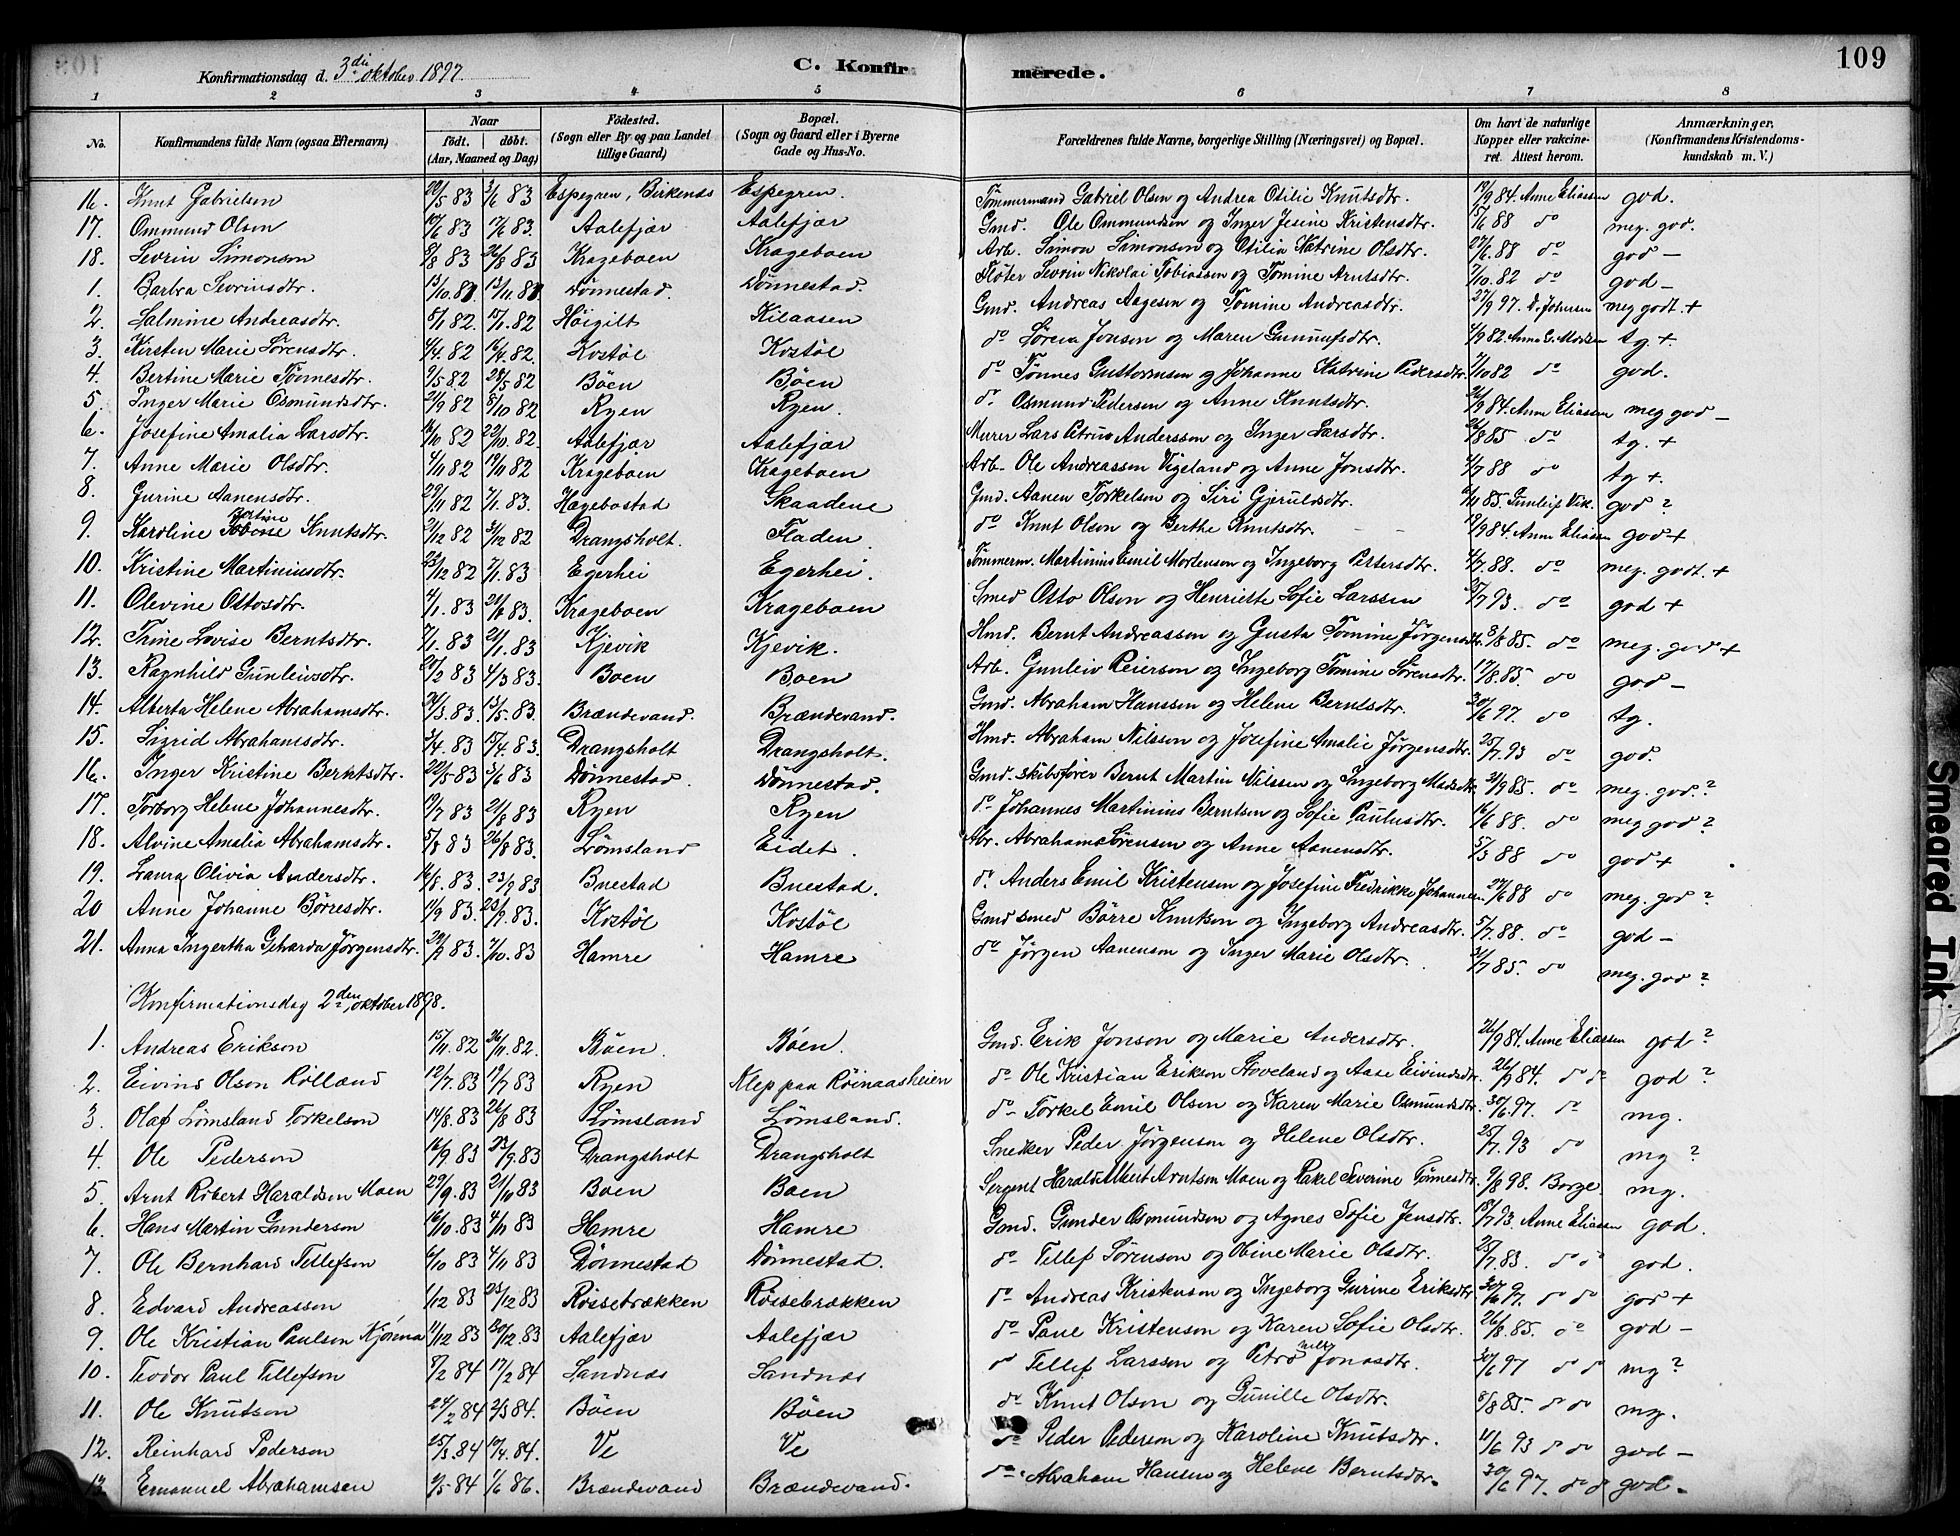 109
Konfirmationsdag d. 3die oktober 1897. C. Konfirmerede.
1 2 3 4 5 6 7 8
No. Konfirmandens fulde Navn (ogsaa Efternavn) Naar födt. döbt. (Aar, Maaned og Dag) Födested. (Sogn eller By og paa Landet tillige Gaard) Bopæl. (Sogn og Gaard eller i Byerne Gade og Hus-No. Forældrenes fulde Navne, borgerlige Stilling (Næringsvei) og Bopæl. Om havt de naturlige Kopper eller vakcineret. Attest herom. Anmærkninger, (Konfirmandens Kristendomskundskab m. V.)
16. Knut Gabrielson 20/5 83 3/6 83 Espegren, Birkenes Espegren. Tømmermand Gabriel Olson og Andrea Otilie Knutsdtr. 19/9 84. Anne Eliassen god.
17. Ommund Olson 10/6 83 17/6 83. Aalefjær Aalefjær Gmd. Ole Ommundsen og Inger Jesine Kristensdtr. 15/6 88 do meg. god.
18. Severin Simonson 8/8 83 26/8 83 Krageboen Krageboen Arb. Simon Simonson og Otilia Katrine Olsdtr. 27/6. 88 do god –
1. Barbra Sevrinsdtr. 13/10. 81 13/11. 81 Dönnestad. Dönnestad. Fløter Sevrin Nikolai Tobiassen og Tomine Arntsdtr. 7/10. 82 do god –
2. Salmine Andreasdtr. 5/1 82 15/1. 82 Høigilt Kilaasen Gmd. Andreas Aagesen og Tomine Andreasdtr. 27/9 97. D. Johnsen meg godt. +
3. Kirsten Marie Sørensdtr. 4/4. 82 16/4. 82. Kostøl Kostøl do Søren Jonson og Maren Gunnufsdtr. 4/9 82. Anna G. Madsen tg. +.
4. Bertine Marie Tönnesdtr. 9/5 82 28/5 82 Böen Böen do Tönnes Guttormsen og Johanne Katrine Pedersdtr. 7/10 82 do god.
5. Inger Marie Osmundsdtr. 21/9 82 8/10 82 Ryen Ryen. do Osmund Pedersen og Anne Knutsdtr. 26/9 84. Anne Eliassen meg god –
6. Josefine Amalia Larsdtr. 16/10 82 22/10 82. Aalefjær Aalefjær Murer Lars Petrus Andersson og Inger Larsdtr. 26/8 85 do tg. +
7. Anne Marie Olsdtr. 4/11 82 19/11 82 Krageboen Krageboen Arb. Ole Andreassen Vigeland og Anne Jonsdtr. 4/7 88 do tg +.
8. Gurine Aanensdtr. 29/11 82 7/1. 83. Hægebostad Skaadene Gmd. Aanen Torkelsen og Siri Gjeruldsdtr. 6/11 85. Gunleif Vik. god ?
9. Karoline Bertine Knutsdtr. 21/12 82 31/12 82 Drangsholt. Fladen. do Knut Olson og Berthe Knutsdtr. 19/9 84. Anne Eliassen god +
10. Kristine Martiniusdtr. 23/12 82 7/1. 83 Egerhei Egerhei. Tømmerm. Martinius Emil Mortenson og Ingeborg Petersdtr. 4/7. 88. do meg. godt. +
11. Olevine Ottosdtr. 4/1. 83 21/1 83. Krageboen Krageboen Smed Otto Olson og Henriette Sofie Larssen 25/7 93. do god +
12. Trine Lovise Berntsdtr. 7/1. 83 21/1. 83 Kjevik Kjevik. Hmd. Bernt Andreassen og Gusta Tomine Jørgensdtr. 3/8 85. do meg. god +
13. Ragnhild Gunleivsdtr. 20/2 83 4/3 83. Boen Boen Arb. Gunleiv Reierson og Ingeborg Tomine Sørensdtr. 17/8. 85. do god –
14. Alberta Helene Abrahamsdtr. 24/3. 83. 13/5. 83. Brændevand. Brændevand. Gmd. Abraham Hanssen og Helene Berntsdtr. 30/6 97. do tg.
15. Sigrid Abrahamsdtr. 3/4. 83 15/4. 83. Drangsholt Drangsholt. Hmd. Abraham Nilsson og Josefine Amalie Jørgensdtr. 25/7. 93 do god.
16. Inger Kristine Berntsdtr. 22/5 83 3/6 83 Dönnestad Dönnestad. Gmd. skibsfører Bernt Martin Nilssen og Ingeborg Madsdtr. 21/9 85. do meg. god. ?
17. Torborg Helene Johannesdtr. 19/7 83 21/8 83 Ryen Ryen do Johannes Martinius Berntsen og Sofie Paulusdtr. 16/6 88. do meg god ?
18. Alvine Amalia Abrahamsdtr. 5/8 83 26/8 83. Lømsland Eidet. Abr. Abraham Sörensen og Anne Aanensdtr. 5/3 88 do god +
19. Laura Olivia Andersdtr. 16/8. 83. 23/9 83 Buestad Buestad. do Anders Emil Kristensen og Josefine Fredrikke Johannesen 27/6 88 do meg. god ?
20 Anne Johanne Børresdtr. 11/9 83. 23/9. 83. Kostøl Kostøl Gmd smed Börre Knutson og Ingeborg Andreasdtr. 5/7. 88. do god –
21. Anna Ingertha Geharda Jörgensdtr. 29/9 83. 7/10. 83 Hamre Hamre do Jörgen Aanenson og Inger Marie Olsdtr. 31/7 85. do meg. god ?
Konfirmationsdag 2den oktober 1898.
1. Andreas Erikson 15/11. 82 26/11. 82. Böen. Böen. Gmd. Erik Jonson og Marie Andersdtr. 26/9 84. Anne Eliassen god ?
2. Eivind Olson Rölland 12/7. 83 19/7 83 Ryen Klep paa Röinaasheien do Ole Kristian Erikson Stoveland og Aase Eivindsdtr. 26/9 84. do do god ?
3. Olaf Lømsland Torkelson 14/8. 83 26/8 83 Lømsland Lømsland. do Torkel Emil Olson og Karen Marie Osmundsdtr. 30/6. 97. do mg.
4. Ole Pederson 16/9 83 23/9. 83 Drangsholt Drangsholt Snedker Peder Jørgenson og Helene Olsdtr. 25/7. 93 do mg ?
5. Arnt Robert Haraldsen Moen 29/9. 83 21/10 83 Boen Boen Sergent Harald Albert Arntson Moen og Pakel Severine Tönnesdtr. 9/8 98. Borge. mg.
6. Hans Martin Gunderson 16/10. 83 4/11 83 Hamre Hamre Gmd. Gunder Osmundson og Agnes Sofie Jensdtr. 15/7 93. Anne Eliassen god.
7. Ole Bernhard Tellefson 6/10 83 4/11 83 Dönnestad Dönnestad. do Tellef Sørenson og Obine Marie Olsdtr. 25/7. 83. do do god.
8 Edvard Andreasson 1/12 83 23/12 83 Røssebrækken Røssebrækken do Andreas Kristenson og Ingeborg Gurine Eriksdtr 30/6 97. do do god +
9. Ole Kristian Paulson Kjönna 11/12 83 30/12. 83 Aalefjær Aalefjær do Paul Kristenson og Karen Sofie Olsdtr. 26/8. 85. do god –
10. Teodor Paul Tellefson 5/2 84 17/2 84 Sandnes Sandnes do Tellef Larsson og Petronelle Jonasdtr. 30/6 97 do do mg ?
11. Ole Knutson 24/2 84 2/3 84. Böen Böen do Knut Olson og Gunille Olsdtr. 8/8 85. do do mg.
12. Reinhard Pederson 25/3. 84 14/4. 84. Ve Ve do Peder Pederson og Karoline Knutsdtr. 11/6 93 do do god –
13. Emanuel Abrahamsen 9/5 84 1/6 86. Brændevand Brændevand. do Abraham Hansen og Helene Berntsdtr. 30/6 97. do do god.
Smeared Ink